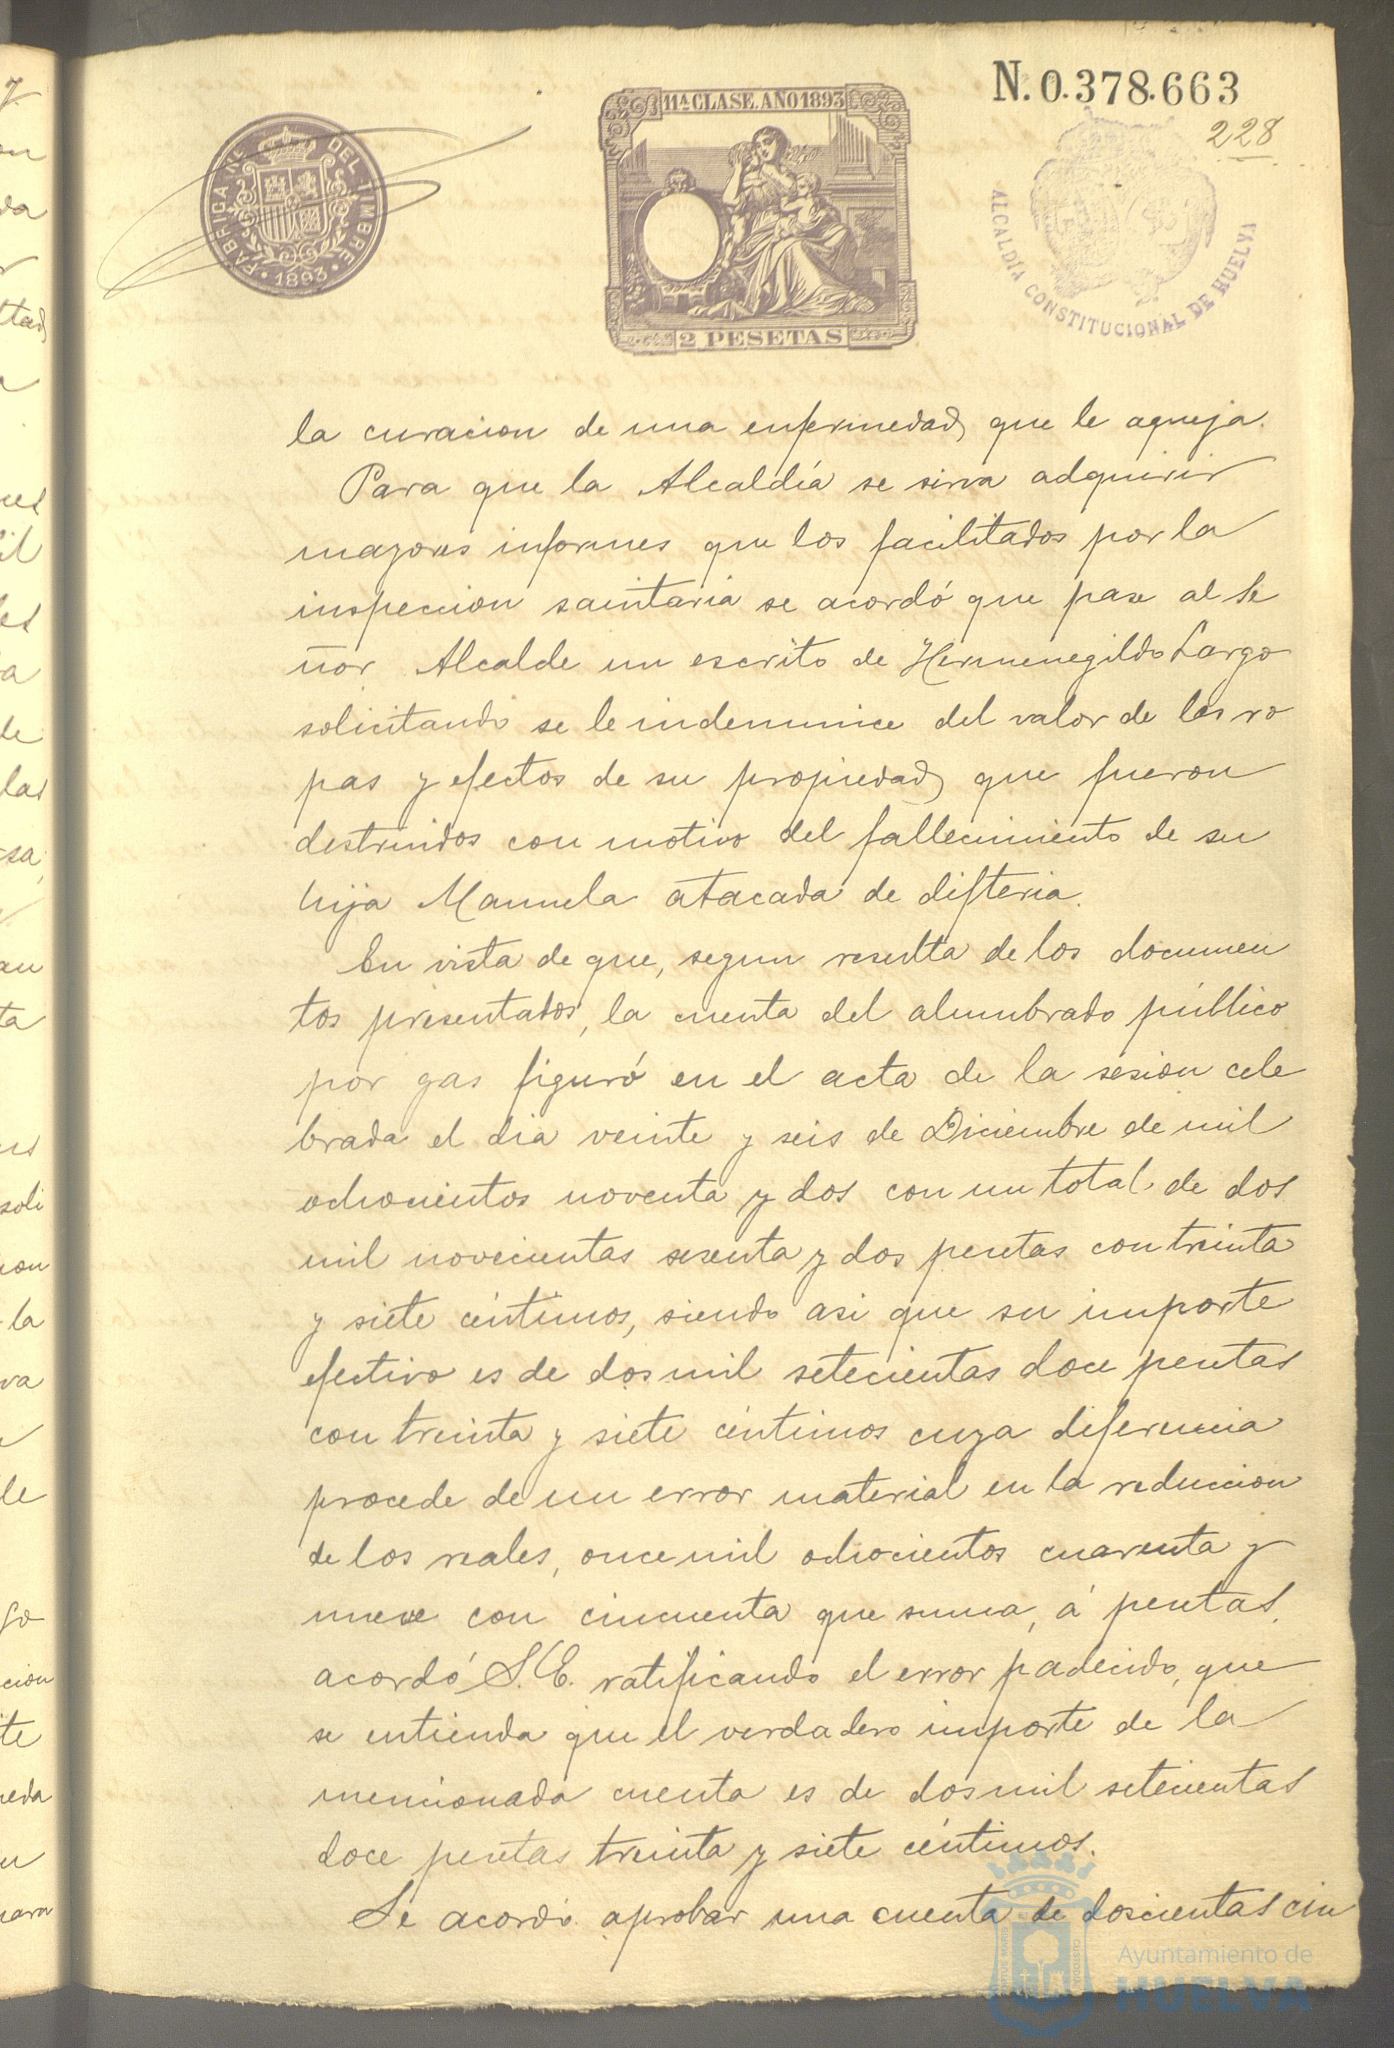 N. 0.378.663
228
11ª CLASE. AÑO 1893
2 PESETAS
FÁBRICA NL. DEL TIMBRE
1893
ALCALDÍA CONSTITUCIONAL DE HUELVA
la curacion de una enfermedad, que le aqueja.
Para que la Alcaldía se sirva adquirir
mayores informes que los facilitados por la
inspeccion sanitaria se acordó que pase al Se
ñor Alcalde un escrito de Hermenegildo Largo
solicitando se le indemnice del valor de las ro
pas y efectos de su propiedad, que fueron
destruidos con motivo del fallecimiento de su
hija Manuela atacada de difteria.
En vista de que, segun resulta de los documen
tos presentados, la cuenta del alumbrado público
por gas figuró en el acta de la sesion cele
brada el dia veinte y seis de Diciembre de mil
ochocientos noventa y dos con un total de dos
mil novecientas sesenta y dos pesetas con treinta
y siete céntimos, siendo asi que su importe
efectivo es de dos mil setecientas doce pesetas
con treinta y siete céntimos cuya diferencia
procede de un error material en la reduccion
de los reales, once mil ochocientos cuarenta y
nueve con cincuenta que suma, á pesetas,
acordó S.E. ratificando el error padecido, que
se entienda que el verdadero importe de la
mencionada cuenta es de dos mil setecientas
doce pesetas treinta y siete céntimos.
Se acordó aprobar una cuenta de doscientas cin
Ayuntamiento de
HUELVA